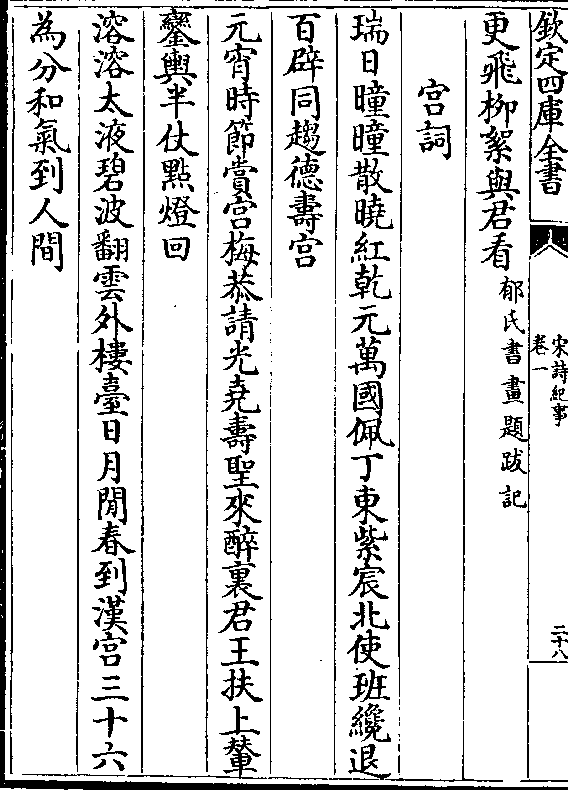 欽定四庫全書
宋詩紀事
卷一
二十八
更飛柳絮與君看郁氏書畫題跋記
宫詞
瑞日曈曈散曉紅乾元萬國佩丁東紫宸北使班纔退
百辟同趨德壽宫
元宵時節賞宫梅恭請光堯壽聖來醉裏君王扶上輦
鑾輿半仗點燈回
溶溶太液碧波翻雲外樓臺日月閒春到漢宫三十六
為分和氣到人間